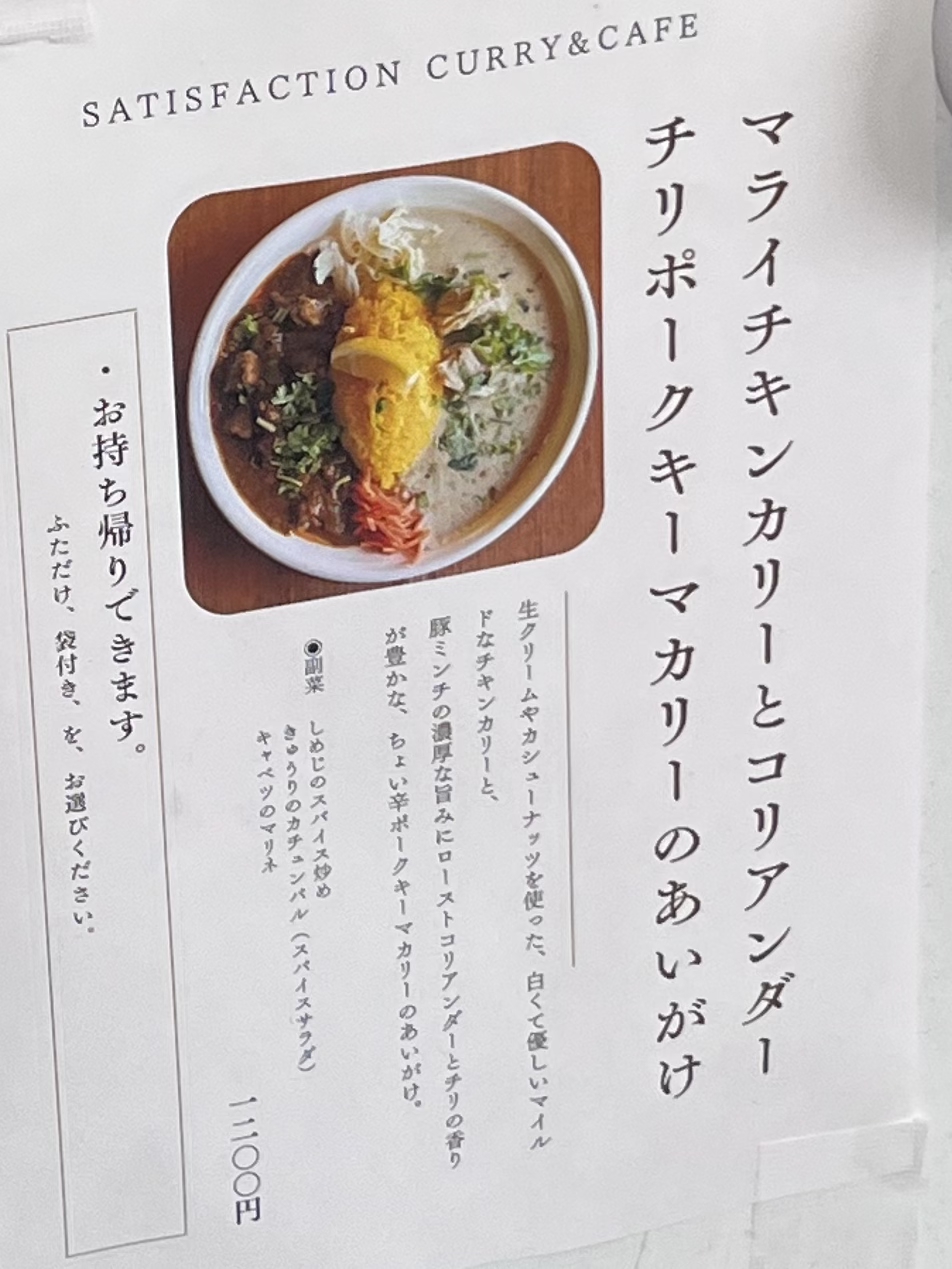 SATISFACTION CURRY&CAFE
マライチキンカリーとコリアンダー
チリポークキーマカリーのあいがけ
生クリームやカシューナッツを使った、白くて優しいマイル
ドなチキンカリーと、
豚ミンチの濃厚な旨みにローストコリアンダーとチリの香り
が豊かな、ちょい辛ポークキーマカリーのあいがけ。
◉副菜 しめじのスパイス炒め
きゅうりのカチュンバル（スパイスサラダ）
キャベツのマリネ
一二〇〇円
・お持ち帰りできます。
ふただけ、袋付き、を、お選びください。